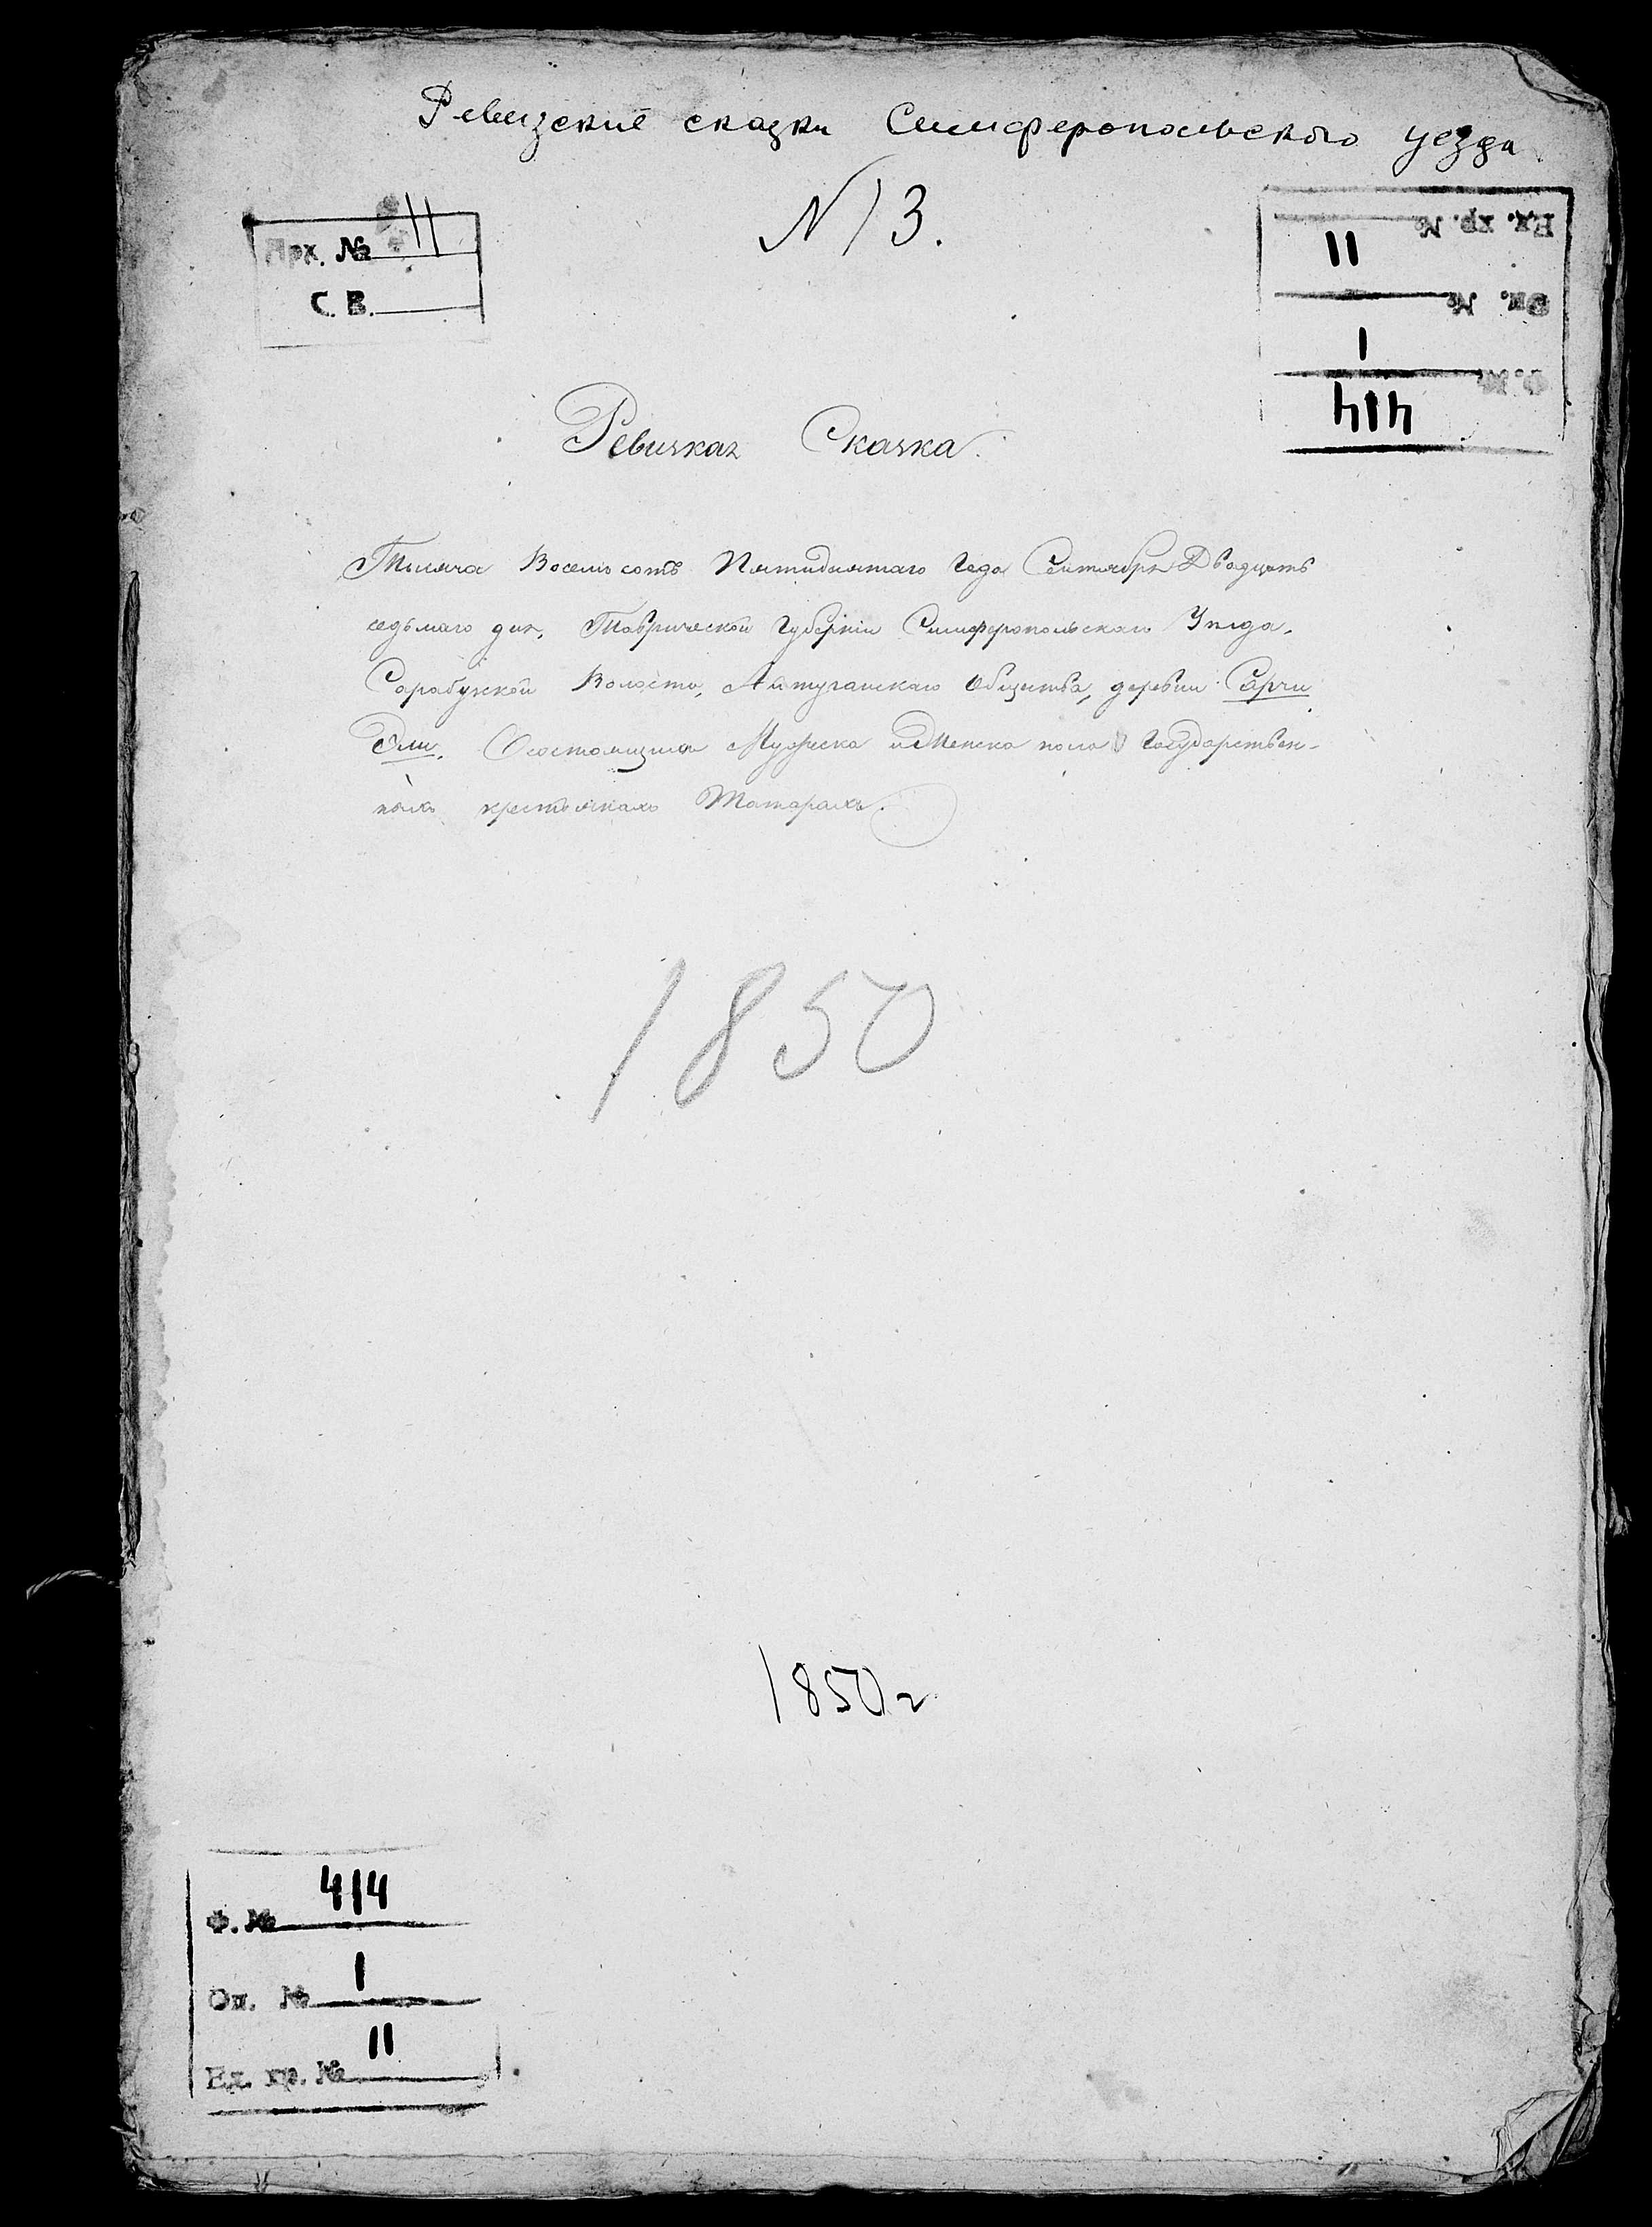 Ревизские сказки Симферопольского уезда
N 13.
Арх. № 11
С. В.
Ед. хр. №
11
Оп. №
1
Ф. №
414
Ревизкая Сказка.
Тысяча Восемь сотъ Пятидесятаго Года Сентября Двадцать
седьмаго дня, Таврической Губерніи Симферопольскаго Уезда,
Сарабузской Волости, Айтуганскаго Общества, деревни Сарчи
Эли, О состоящихъ Мужеска и Женска пола Государствен-
ныхъ крестьянахъ Татарахъ.
1850
1850 г
Ф. № 414
Оп. № 1
Ед. хр. № 11